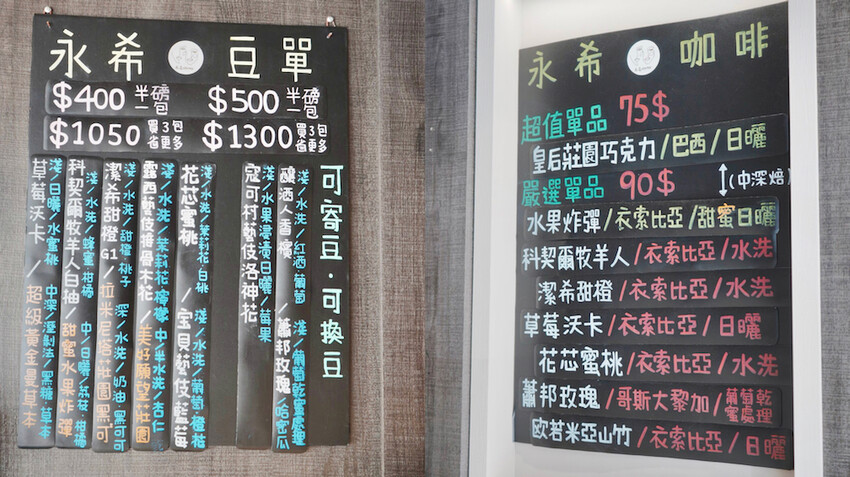 永希 豆單
$400 半磅一包 $500 半磅一包
$1050 買3包省更多 $1300 買3包省更多
可寄豆·可換豆
釀酒人香檳 淺/水洗/紅酒葡萄 / 蕭邦玫瑰 淺/葡萄乾蜜處理/哈密瓜
寇可村藝伎洛神花 淺/水果浸漬日曬/莓果
花芯蜜桃 淺/水洗/茉莉花·白桃 / 宝貝藝伎藍莓 淺/水洗/葡萄·橙桔
露西藝伎接骨木花 淺/水洗/茉莉花·檸檬 / 美好願望莊園 中/半水洗/杏仁
潔希甜橙G1 淺/水洗/甜橙·桃子 / 拉米尼塔莊園黑可 深/水洗/奶油·黑可可
科契爾牧羊人白抽 淺/水洗/蜂蜜·柑橘 / 甜蜜水果炸彈 中/日曬/荔枝·柑橘
草莓沃卡 淺/日曬/水蜜桃 / 超級黃金曼草本 中深/溼剝法/黑糖·草本
永希 咖啡
超值單品 75$
皇后莊園巧克力/巴西/日曬
嚴選單品 90$ ↕(中深焙)
水果炸彈/衣索比亞/甜蜜日曬
科契爾牧羊人/衣索比亞/水洗
潔希甜橙/衣索比亞/水洗
草莓沃卡/衣索比亞/日曬
花芯蜜桃/衣索比亞/水洗
蕭邦玫瑰/哥斯大黎加/葡萄乾蜜處理
欧若米亞山竹/衣索比亞/日曬